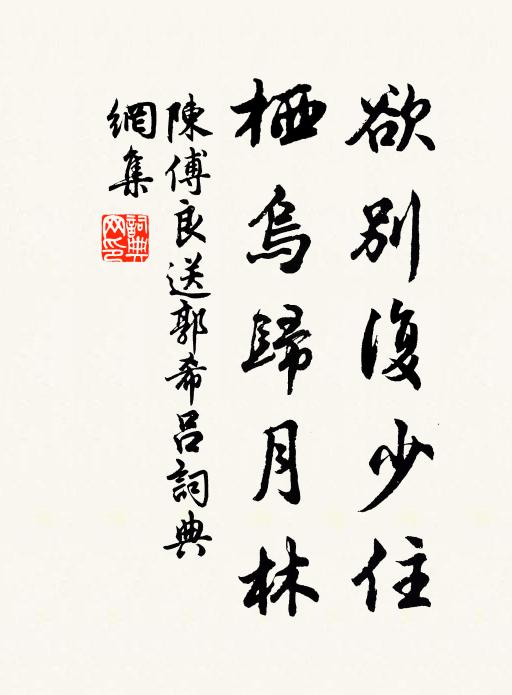 欲別復少住
栖烏歸月林
陳傅良送郭希呂詞典
網集
詞典
网印